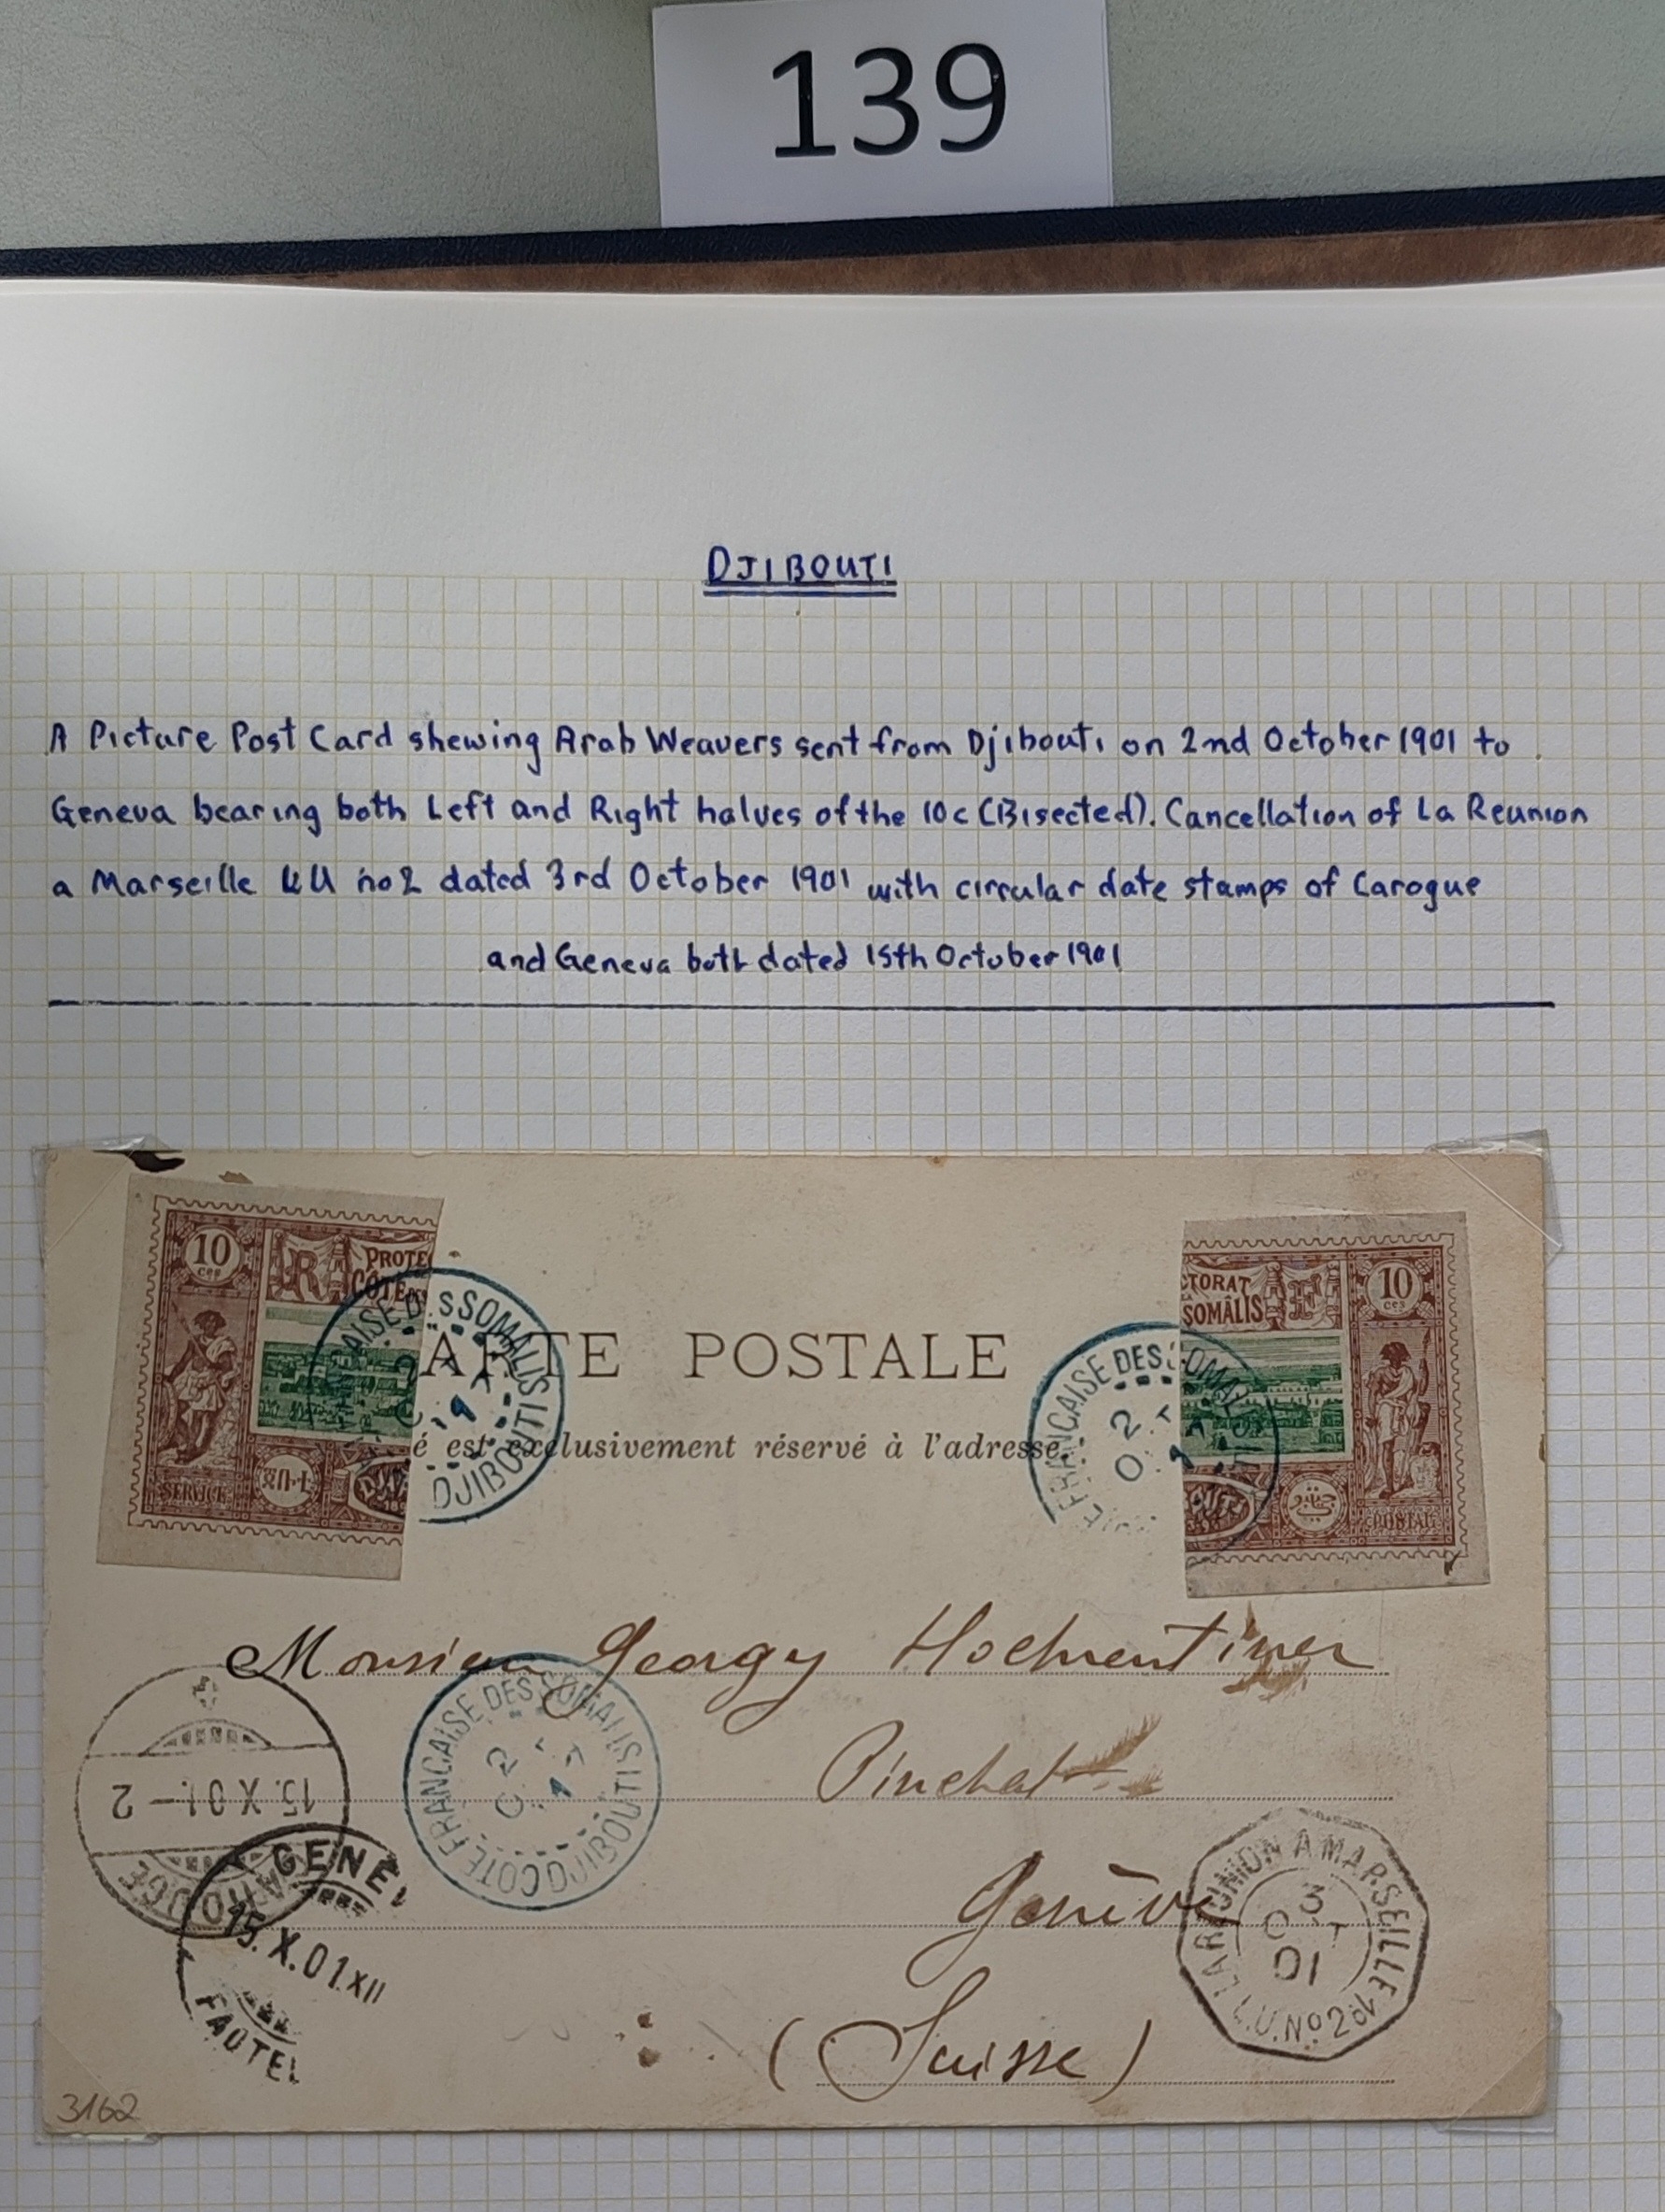 139
DJIBOUTI
A Picture Post Card shewing Arab Weavers sent from Djibouti on 2nd October 1901 to
Geneva bearing both Left and Right halves of the 10c (Bisected). Cancellation of La Reunion
a Marseille LU no2 dated 3rd October 1901 with circular date stamps of Carogue
and Geneva both dated 15th October 1901
10 ces R PROTE
COTE
SERVICE
CTORAT F 10 ces
SOMÂLIS
POSTAL
ARTE POSTALE
é est exclusivement réservé à l'adresse.
AISE DES SOMALIS DJIBOUTI
FRANÇAISE DES SOMALIS 2 OCT
Monsieur Georgy
Pinchat
Genève
(Suisse)
COTE FRANÇAISE DES SOMALIS DJIBOUTI 2 OCT
15.X.01.-2
CAROUGE
GENÈV
15.X.01.XII
FACTEU
LA REUNION A MARSEILLE
3 OCT 01
L.U. No 2
3162